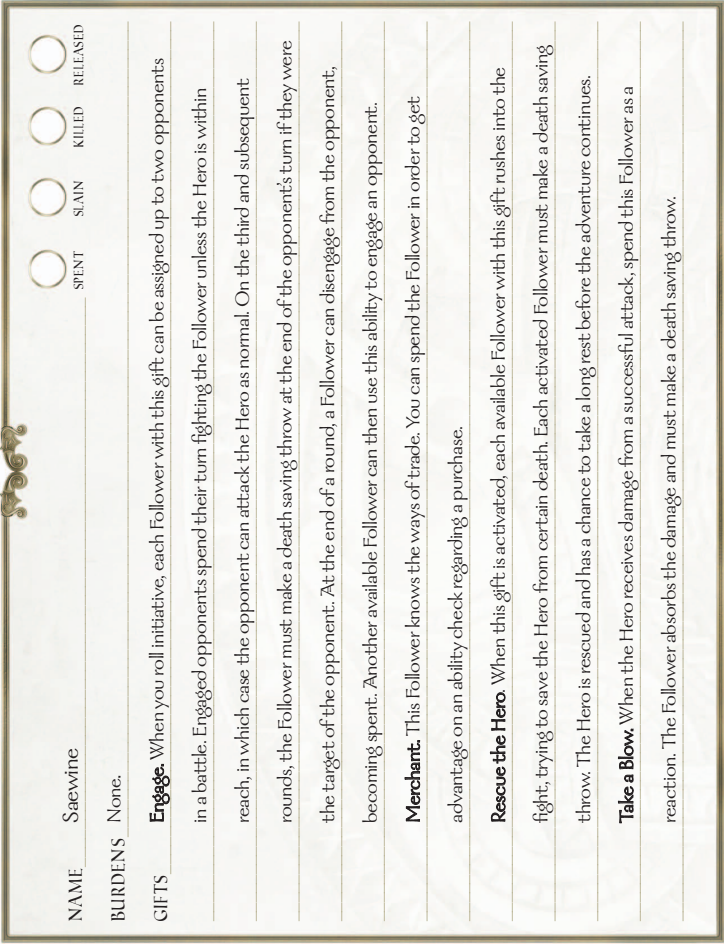 NAME Saewine SPENT SLAIN KILLED RELEASED
BURDENS None.
GIFTS Engage. When you roll initiative, each Follower with this gift can be assigned up to two opponents
in a battle. Engaged opponents spend their turn fighting the Follower unless the Hero is within
reach, in which case the opponent can attack the Hero as normal. On the third and subsequent
rounds, the Follower must make a death saving throw at the end of the opponent's turn if they were
the target of the opponent. At the end of a round, a Follower can disengage from the opponent,
becoming spent. Another available Follower can then use this ability to engage an opponent.
Merchant. This Follower knows the ways of trade. You can spend the Follower in order to get
advantage on an ability check regarding a purchase.
Rescue the Hero. When this gift is activated, each available Follower with this gift rushes into the
fight, trying to save the Hero from certain death. Each activated Follower must make a death saving
throw. The Hero is rescued and has a chance to take a long rest before the adventure continues.
Take a Blow. When the Hero receives damage from a successful attack, spend this Follower as a
reaction. The Follower absorbs the damage and must make a death saving throw.